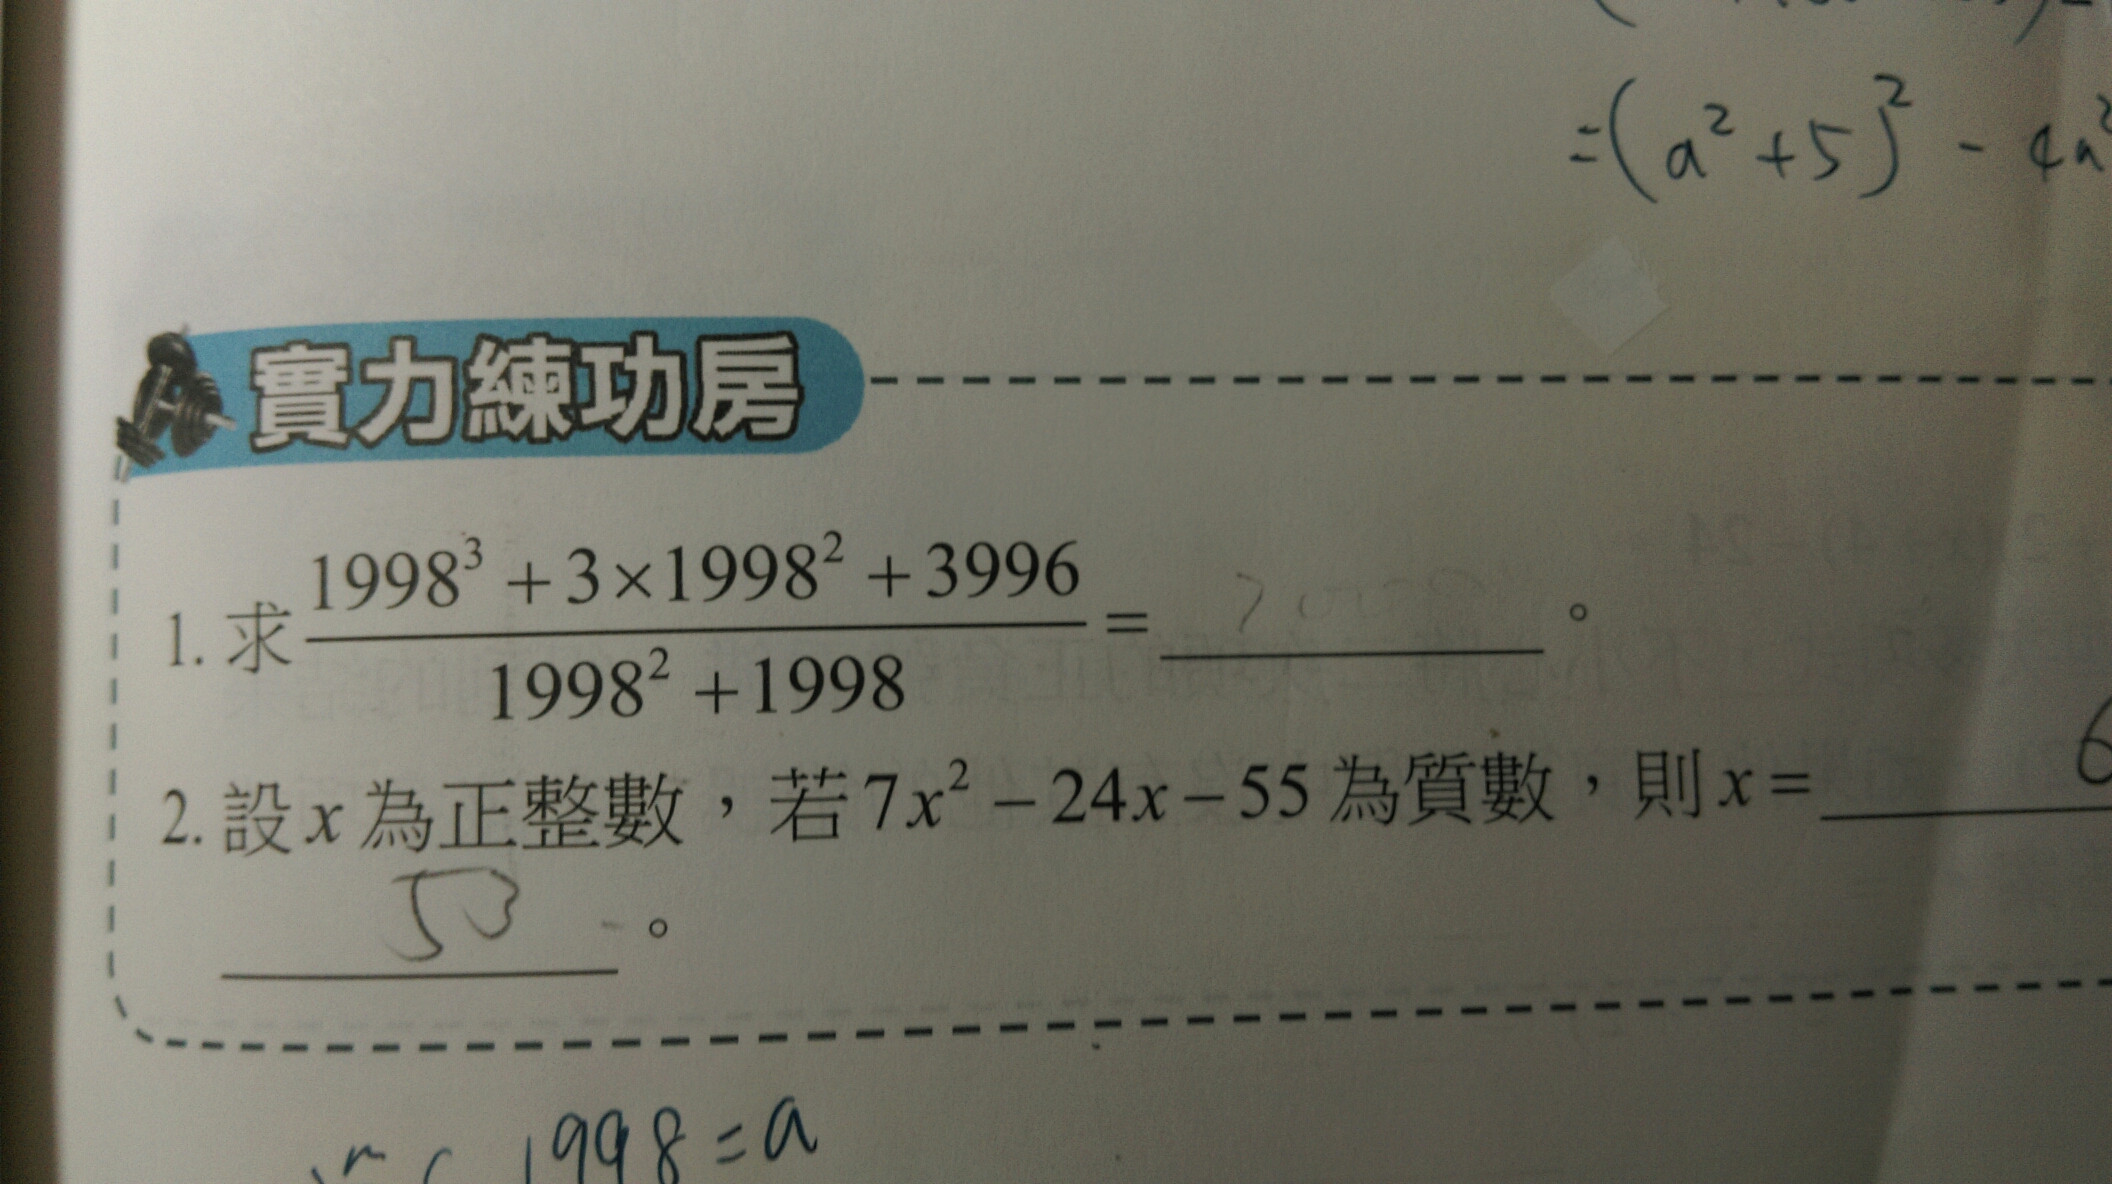 =(a²+5)² - 4a²
實力練功房
1. 求 (1998³+3×1998²+3996)/(1998²+1998) = 。
2. 設 x 為正整數，若 7x²-24x-55 為質數，則 x = 6
53 。
1998=a